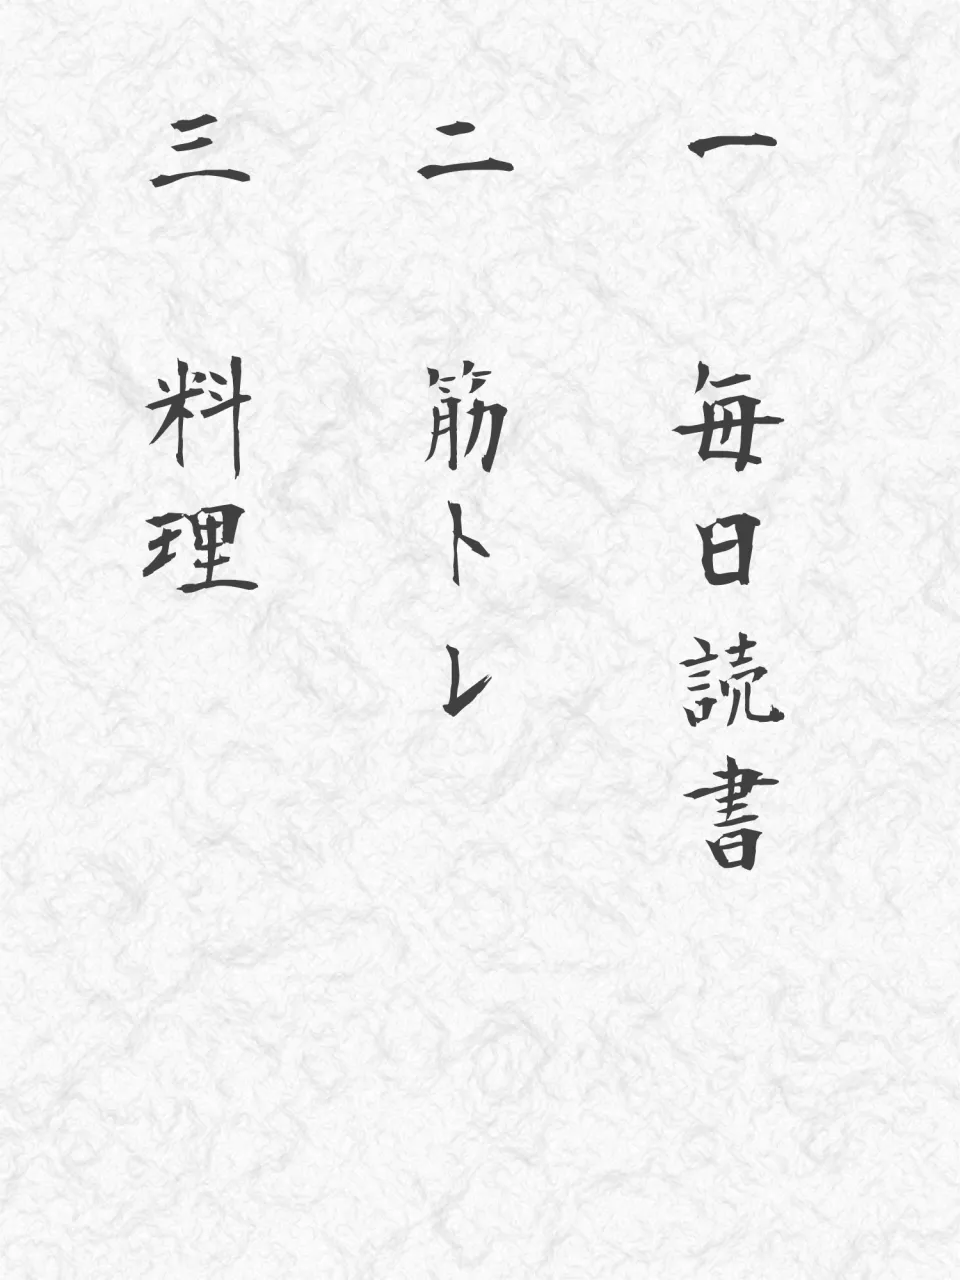 一 毎日読書
二 筋トレ
三 料理